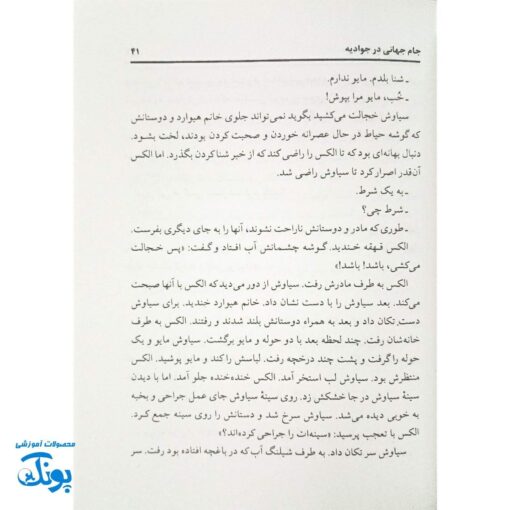 جام جهانی در جوادیه ۴۱
ـ شنا بلدم. مایو ندارم.
ـ خُب، مایو مرا بپوش!
سیاوش خجالت می‌کشید بگوید نمی‌تواند جلوی خانم هیوارد و دوستانش
که گوشه حیاط در حال عصرانه خوردن و صحبت کردن بودند، لخت بشود.
دنبال بهانه‌ای بود که تا الکس را راضی کند که از خبر شنا کردن بگذرد. اما الکس
آن‌قدر اصرار کرد تا سیاوش راضی شد.
ـ به یک شرط.
ـ شرط چی؟
ـ طوری که مادر و دوستانش ناراحت نشوند، آنها را به جای دیگری بفرست.
الکس قهقه خندید. گوشه چشمانش آب افتاد و گفت: «پس خجالت
می‌کشی، باشد! باشد!»
الکس به طرف مادرش رفت. سیاوش از دور می‌دید که الکس با آنها صبحت
می‌کند. بعد سیاوش را با دست نشان داد. خانم هیوارد خندید. برای سیاوش
دست تکان داد و بعد به همراه دوستانش بلند شدند و رفتند. الکس به طرف
خانه‌شان رفت. چند لحظه بعد با دو حوله و مایو برگشت. سیاوش مایو و یک
حوله را گرفت و پشت چند درختچه رفت. لباسش را کند و مایو پوشید. الکس
منتظرش بود. سیاوش لب استخر آمد. الکس خنده‌خنده جلو آمد. اما با دیدن
سینهٔ سیاوش در جا خشکش زد. روی سینهٔ سیاوش جای عمل جراحی و بخیه
به خوبی دیده می‌شد. سیاوش سرخ شد و دستانش را روی سینه جمع کرد.
الکس با تعجب پرسید: «سینه‌ات را جراحی کرده‌اند؟»
سیاوش سر تکان داد. به طرف شیلنگ آب که در باغچه افتاده بود رفت. سر
محصولات آموزشی
پونک